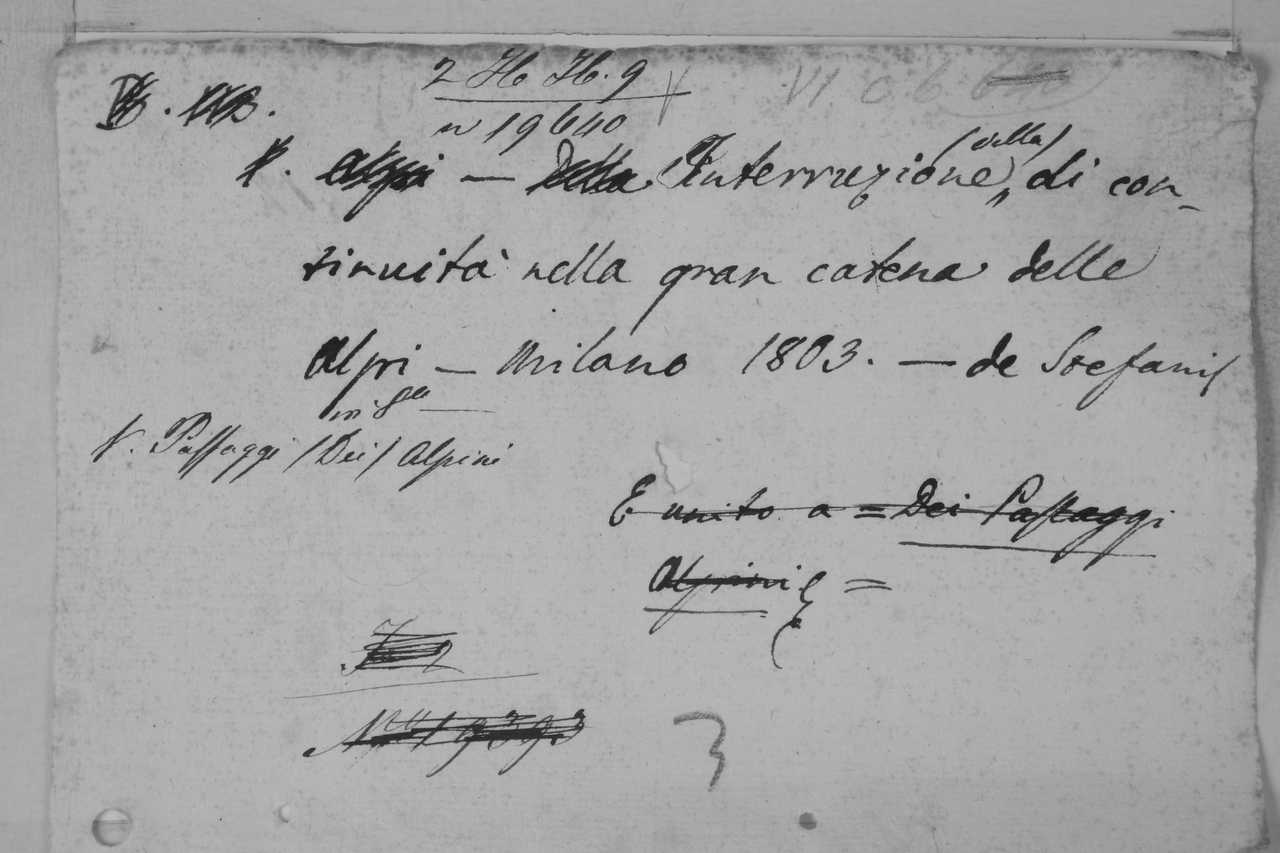 2 Hb Hb. 9
VI C. 6. 640
n 19640
V. Alpi — Della Interruzione (della) di con-
tinuità nella gran catena delle
Alpi — Milano 1803. — de Stefanis
in 8
V. Passaggi (Dei) Alpini
E unito a = Dei Passaggi
Alpini =
N 19393
3